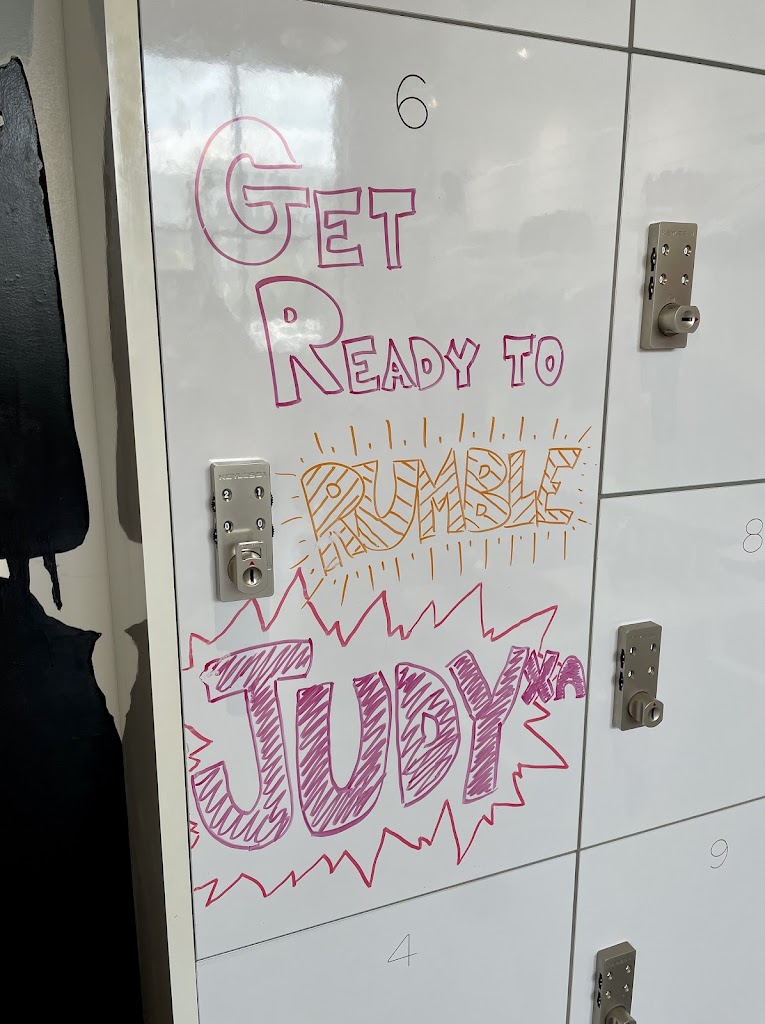 6
GET
READY TO
RUMBLE
JUDY
8
9
4